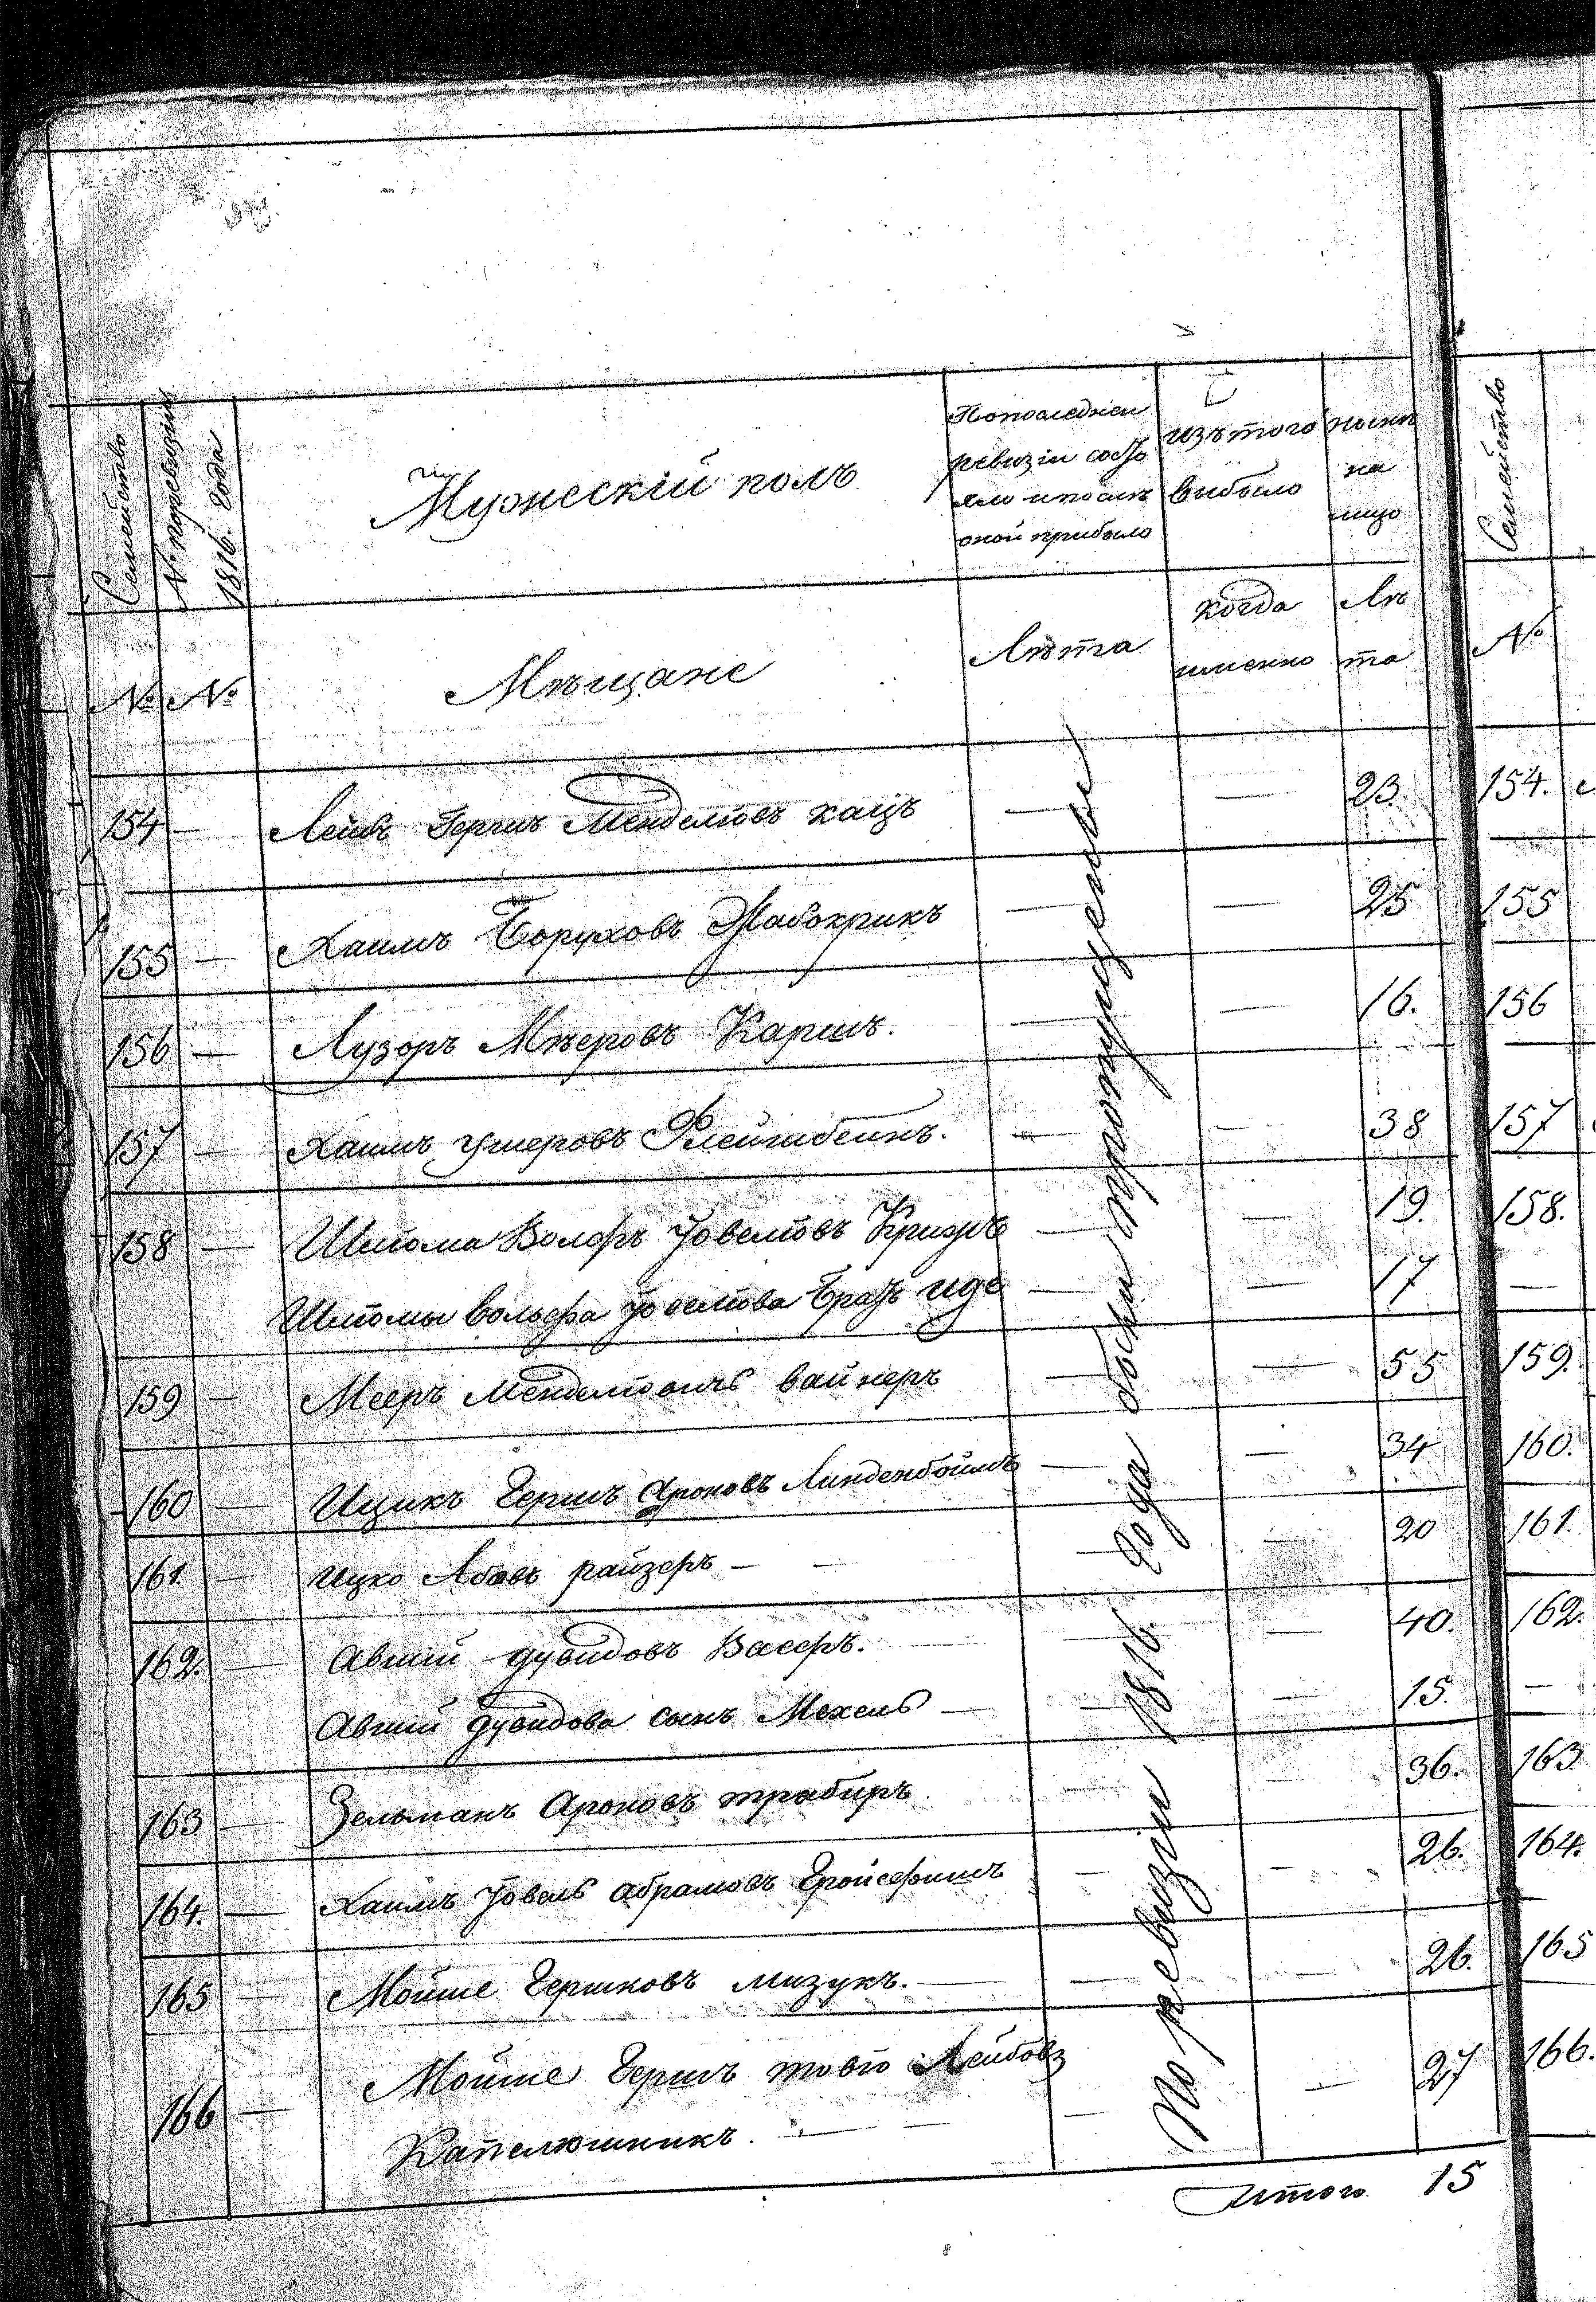 Семейство
№ по ревизии 1816. года
Мужескій полъ
По последней ревизіи состояло и после оной прибыло
изъ того выбыло
ныне на лицо
Семейство
№ №
Мѣщане
Лѣта
когда именно
Лѣта
№
154 — Лейбъ Гершъ Менделювъ кацъ — — 23. 154.
155 — Хаимъ Боруховъ Жабокрикъ — — 25 155
156 — Лузоръ Мѣеровъ Каришъ. — — 16. 156
157 — Хаимъ Ушеровъ Флейшбейнъ. — — 38 157
158 — Шлиома Волфъ Іовелювъ — — 19. 158.
Шлиомы вольфа Іовелюва братъ — — 17 —
159 — Мееръ Менделювичъ вайнеръ — — 55 159.
160 — Ицикъ Гершъ Ароновъ Линденбоймъ — — 34 160.
161 — Ицко Абовъ райзеръ — — — — 20 161.
162. — Авшій дувидовъ Васеръ. — — 40. 162.
Авшій дувидова сынъ Мехель — — — 15. —
163 — Зельманъ Ароновъ — — 36. 163
164. — Хаимъ Іовель абрамовъ Гройсфишъ — — 26. 164.
165 — Мойше Гершковъ мизукъ. — — — 26. 165
166 — Мойше Гершъ товіо Лейбовъ
Капелюшникъ. — — — 27 166.
По ревизіи 1816. года были пропущены
Итого 15